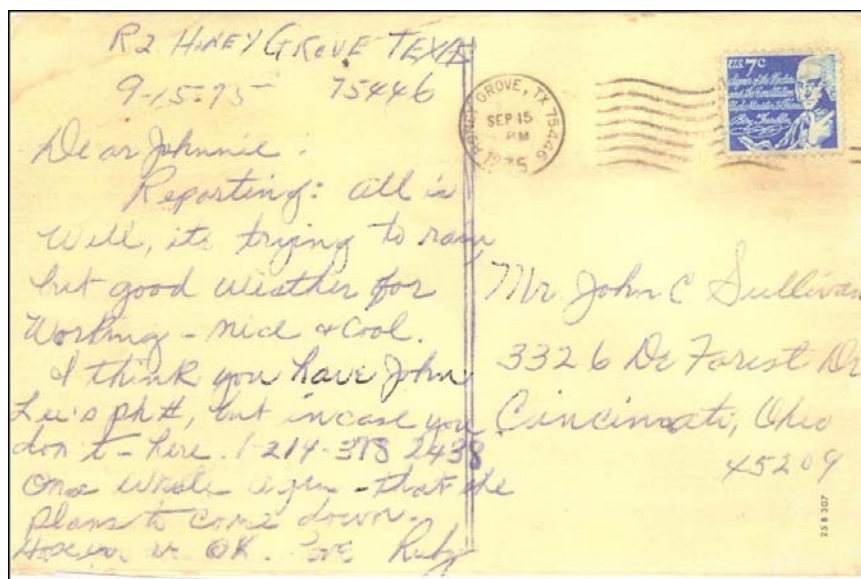 R2 HONEY GROVE TEXAS
9-15-75 75446
Dear Johnnie:
Reporting: all is
Well, its trying to rain
but good weather for
Working - nice & Cool.
I think you have John
Lee's ph #, but in case you
don't - here. 1-214-378 2438
wrote again - that she
plans to come down.
Hope you are OK. Love Ruby
HONEY GROVE, TX 75446
SEP 15
PM
1975
U.S. 7c
Mr John C Sullivan
3326 De Forest Dr
Cincinati, Ohio
45209
25 B 307